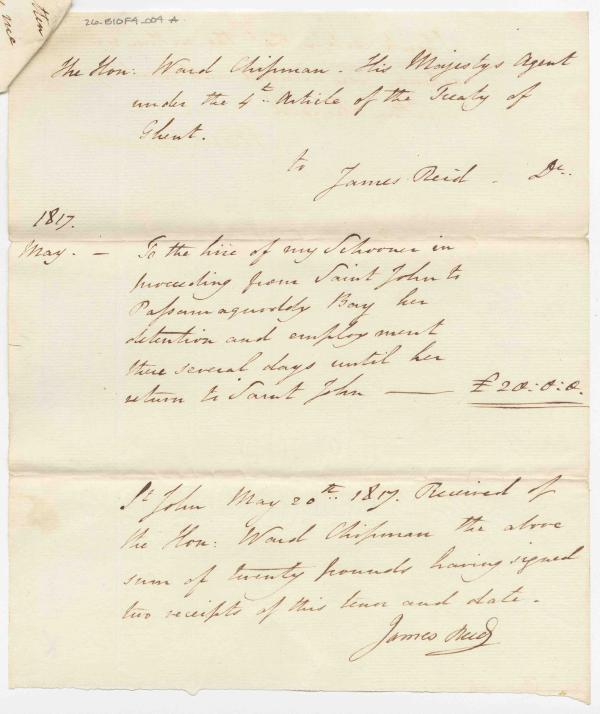 then
nce
26-B10F9-009 A
The Hon: Ward Chipman - His Majestys Agent
under the 4th Article of the Treaty of
Ghent.
to
James Reid - Dr.
1817.
May. — To the hire of my Schooner in
proceeding from Saint John to
Passamaquoddy Bay her
detention and employment
there several days until her
return to Saint John — £20:0:0.
St John May 20th 1817. Received of
the Hon: Ward Chipman the above
sum of twenty pounds having signed
two receipts of this tenor and date.
James Reid